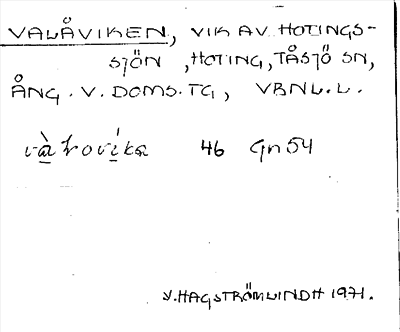 VALÅVIKEN, VIK AV HOTINGS-
SJÖN, HOTING, TÅSJÖ SN,
ÅNG. V. DOMS. TG, VBNL.L.
46 Gn 54
V. HAGSTRÖM LINDH 1971.